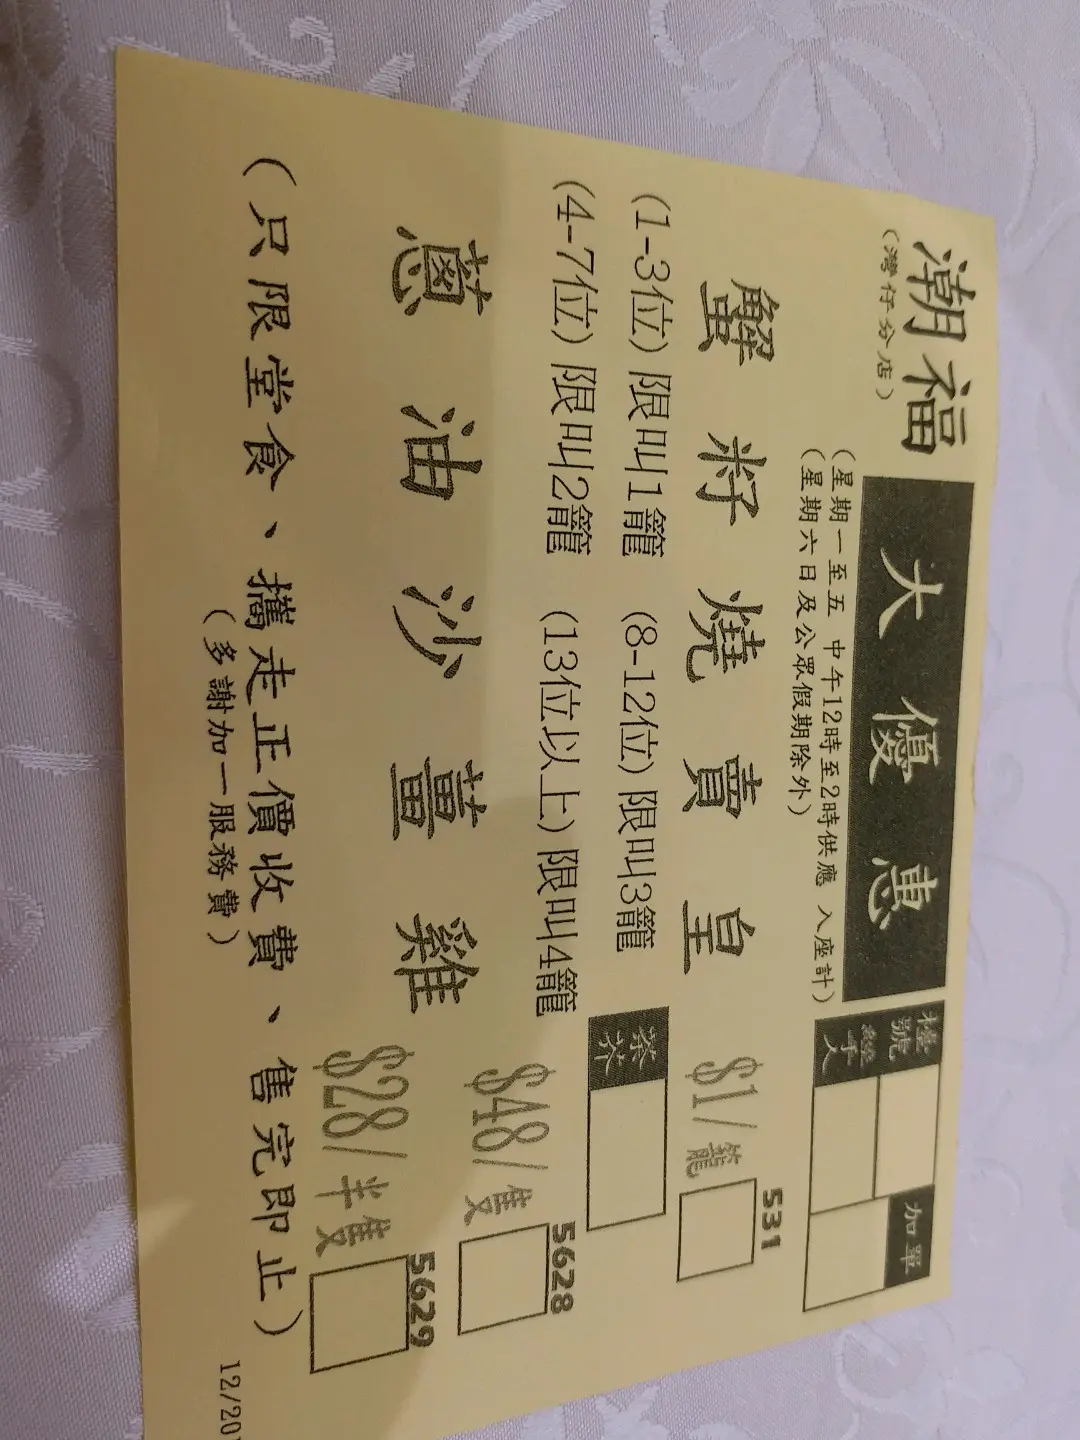 潮福
(灣仔分店)
大優惠
(星期一至五 中午12時至2時供應 入座計)
(星期六日及公眾假期除外)
檯號
經手人
加單
蟹籽燒賣皇 $1/籠 531
(1-3位)限叫1籠 (8-12位)限叫3籠
(4-7位)限叫2籠 (13位以上)限叫4籠
茶芥
蔥油沙薑雞 $48/隻 5628
$28/半隻 5629
(只限堂食、攜走正價收費、售完即止)
(多謝加一服務費)